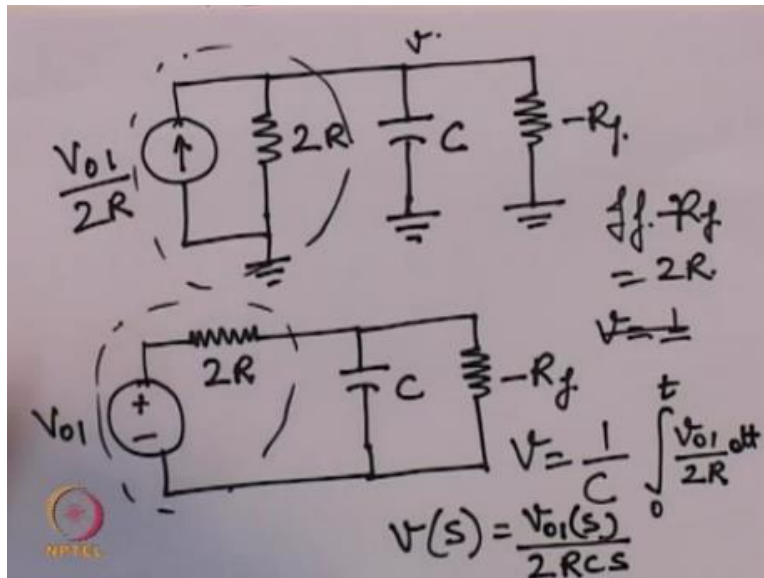 v.
V01
2R
2R
C
-Rf.
If -Rf
= 2R.
V = 1
V01
2R
C
-Rf
V = 1/C ∫0t V01/2R dt
V(s) = V01(s)/2RCS
NPTEL